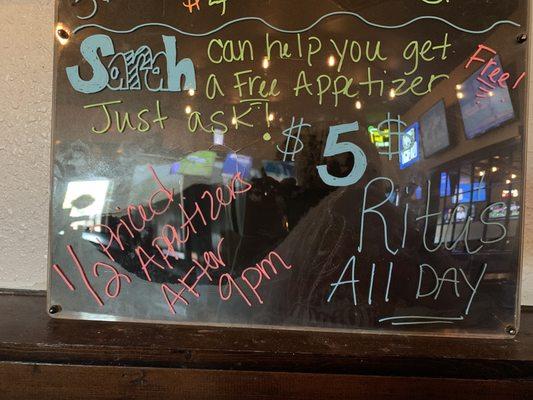 Sarah can help you get
a Free Appetizer
Free!
Just ask!
$5$
Ritas
All DAY
1/2 priced
Appetizers
After
9pm